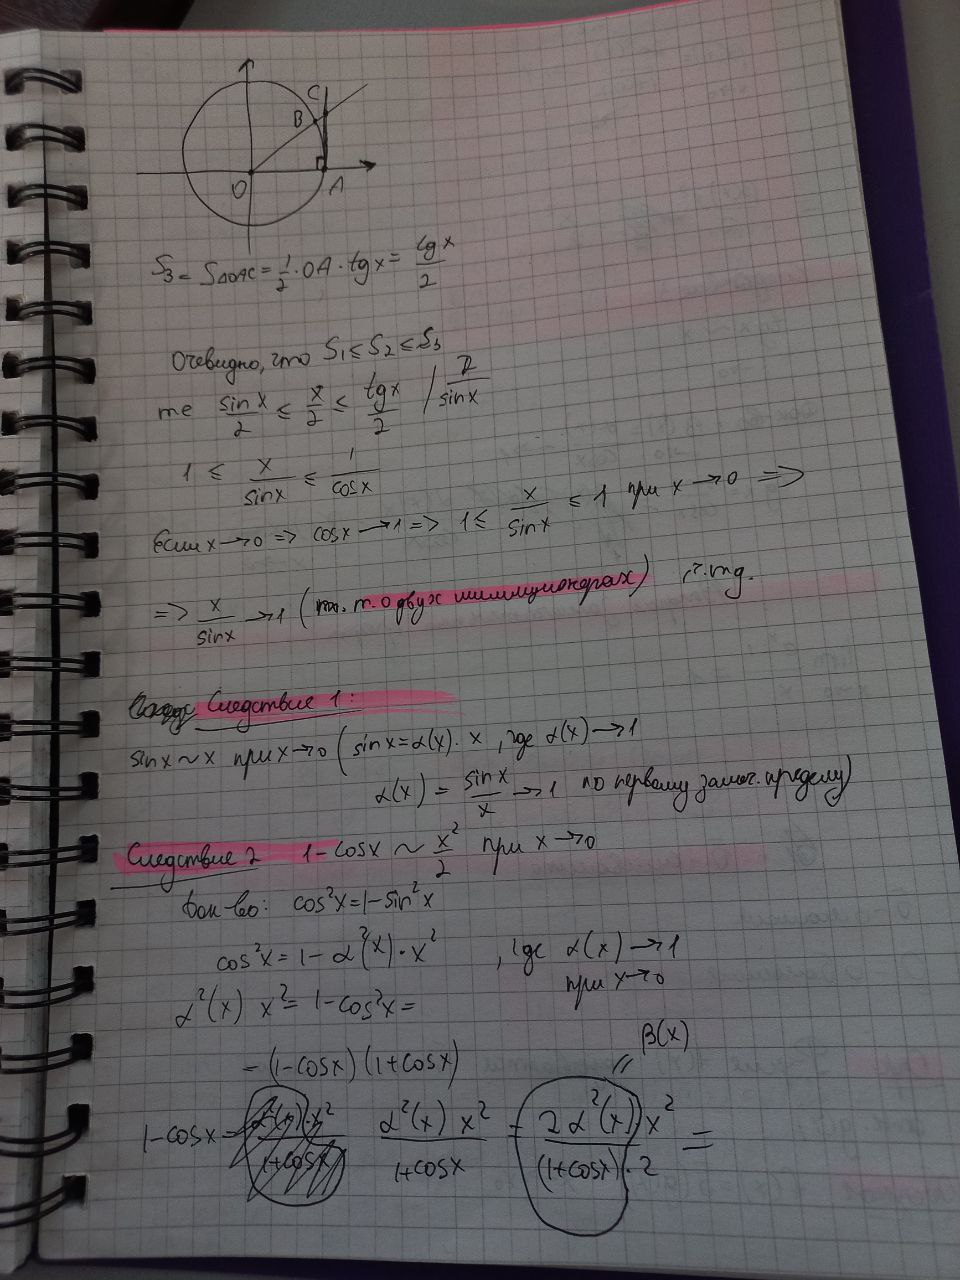 C
B
O
A
S₃ = S△OAC = 1/2 · OA · tgx = tgx/2
Очевидно, что S₁ ≤ S₂ ≤ S₃
те sinx/2 ≤ x/2 ≤ tgx/2 / 2/sinx
1 ≤ x/sinx ≤ 1/cosx
Если x → 0 => cosx → 1 => 1 ≤ x/sinx ≤ 1 при x → 0 =>
=> x/sinx → 1 ( т. о двух милиционерах) ч.тд.
Следствие 1:
sinx ~ x при x → 0 ( sinx = α(x) · x , где α(x) → 1
α(x) = sinx/x → 1 по первому замеч. пределу)
Следствие 2 1 - cosx ~ x²/2 при x → 0
Док-во: cos²x = 1 - sin²x
cos²x = 1 - α²(x) · x² , где α(x) → 1
при x → 0
α²(x) x² = 1 - cos²x =
= (1 - cosx) (1 + cosx)
β(x)
=
1 - cosx = α²(x) x²/1 + cosx = 2α²(x) x²/(1 + cosx) · 2 =